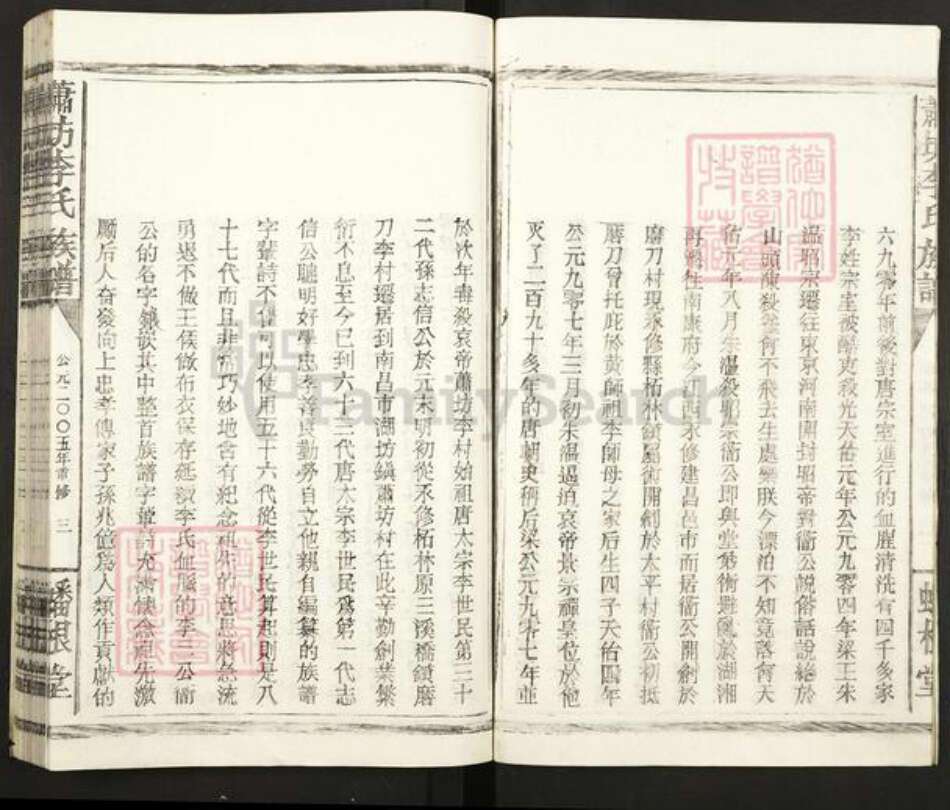 六九零年前後對唐宗室進行的血腥清洗有四千多家
李姓宗室被酷吏殺光天佑元年公元九零四年梁王朱
溫昭宗遷往東京河南開封昭帝對衛公說俗話說絕於
山頭凍殺雀何不飛去生處樂朕今漂泊不知竟落何天
佑元年八月朱溫殺昭宗衛公即與堂弟術避亂於湖湘
再轉往南康府今江西永修建昌邑市而居衛公開創於
磨刀村現永修縣柘林鎮屬術開創於太平村衛公初抵
磨刀曾托此於黃師祖李師母之家后生四子天佑四年
公元九零七年三月初朱溫逼迫哀帝景宗禪皇位於他
灭了二百九十多年的唐朝史稱后梁公元九九零七年並
於次年毒殺哀帝蕭坊李村始祖唐太宗李世民第三十
二代孫志信公於元末明初從永修柘林原三溪橋鎮磨
刀李村遷居到南昌市湖坊鎮蕭坊村在此辛勤創業繁
衍不息至今已到六十三代唐太宗李世民為第一代志
信公聰明好學忠孝善良勤勞自立他親自編纂的族譜
字輩詩不僅可以使用五十六代從李世民算起則是八
十七代而且非常巧妙地含有紀念祖先的意思將急流
勇退不做王侯做布衣保存延續李氏血脈的李三公衛
公的名字鑲嵌其中整首族譜字輩詩充滿懷念祖先激
勵后人奋發向上忠孝傳家子孫兆億為人類作貢獻的
蕭坊李氏族譜
公元二00五年重修
三
蟠根堂
FamilySearch